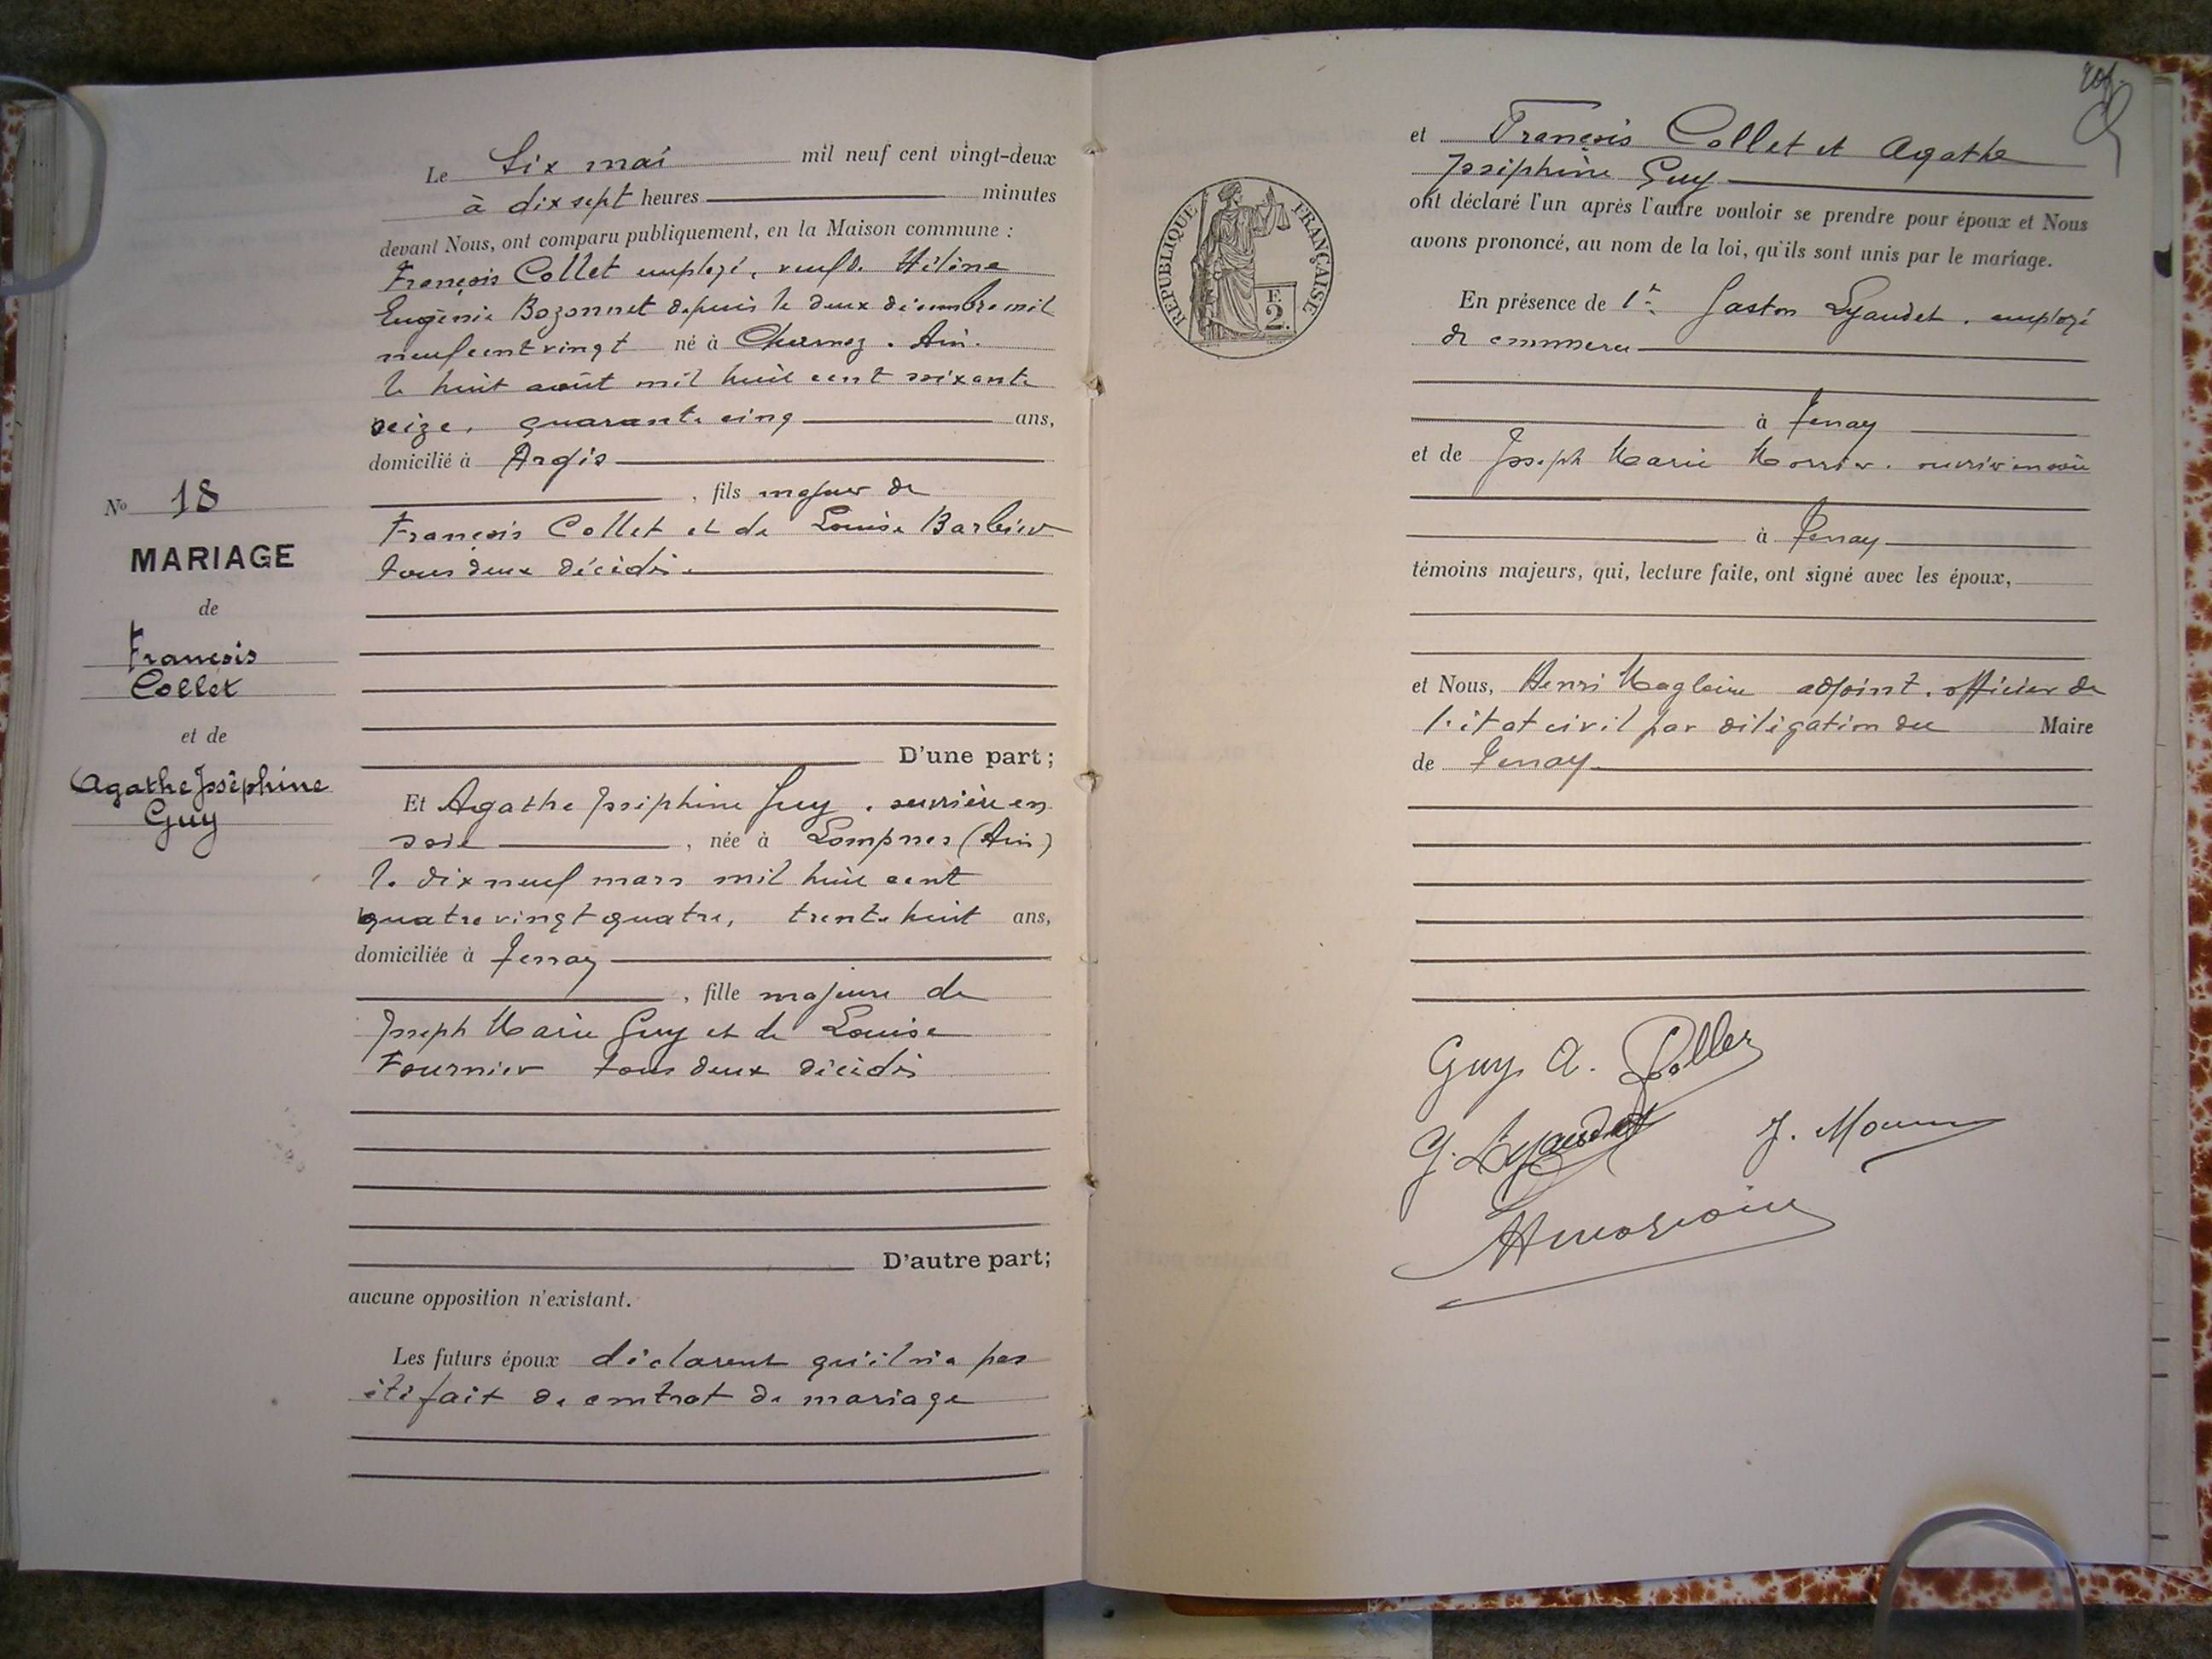 Le Six mai mil neuf cent vingt-deux
à dix sept heures minutes
devant Nous, ont comparu publiquement, en la Maison commune :
François Collet employé, veuf de Hélène
Eugénie Bozonnet depuis le deux décembre mil
neuf cent vingt né à Charnoz. Ain.
le huit août mil huit cent soixante
seize, quarante cinq ans,
domicilié à Argis
, fils majeur de
François Collet et de Louise Barbier
tous deux décédés.
D'une part ;
Et Agathe Joséphine Guy, ouvrière en
soie, née à Lompnes (Ain)
le dix neuf mars mil huit cent
quatre vingt quatre, trente huit ans,
domiciliée à Tenay
, fille majeure de
Joseph Marie Guy et de Louise
Fournier tous deux décédés
D'autre part;
aucune opposition n'existant.
Les futurs époux déclarent qu'il n'a pas
été fait de contrat de mariage
No 18
MARIAGE
de
François
Collet
et de
Agathe Joséphine
Guy
et François Collet et Agathe
Joséphine Guy
ont déclaré l'un après l'autre vouloir se prendre pour époux et Nous
avons prononcé, au nom de la loi, qu'ils sont unis par le mariage.
En présence de 1° Gaston Lyaudet, employé
de commerce
à Tenay
et de Joseph Marie ouvrier en soie
à Tenay
témoins majeurs, qui, lecture faite, ont signé avec les époux,
et Nous, Henri Magloire adjoint, officier de
l'état civil par délégation du Maire
de Tenay.
RÉPUBLIQUE FRANÇAISE
F.
2.
Guy A. Collet
G. Lyaudet